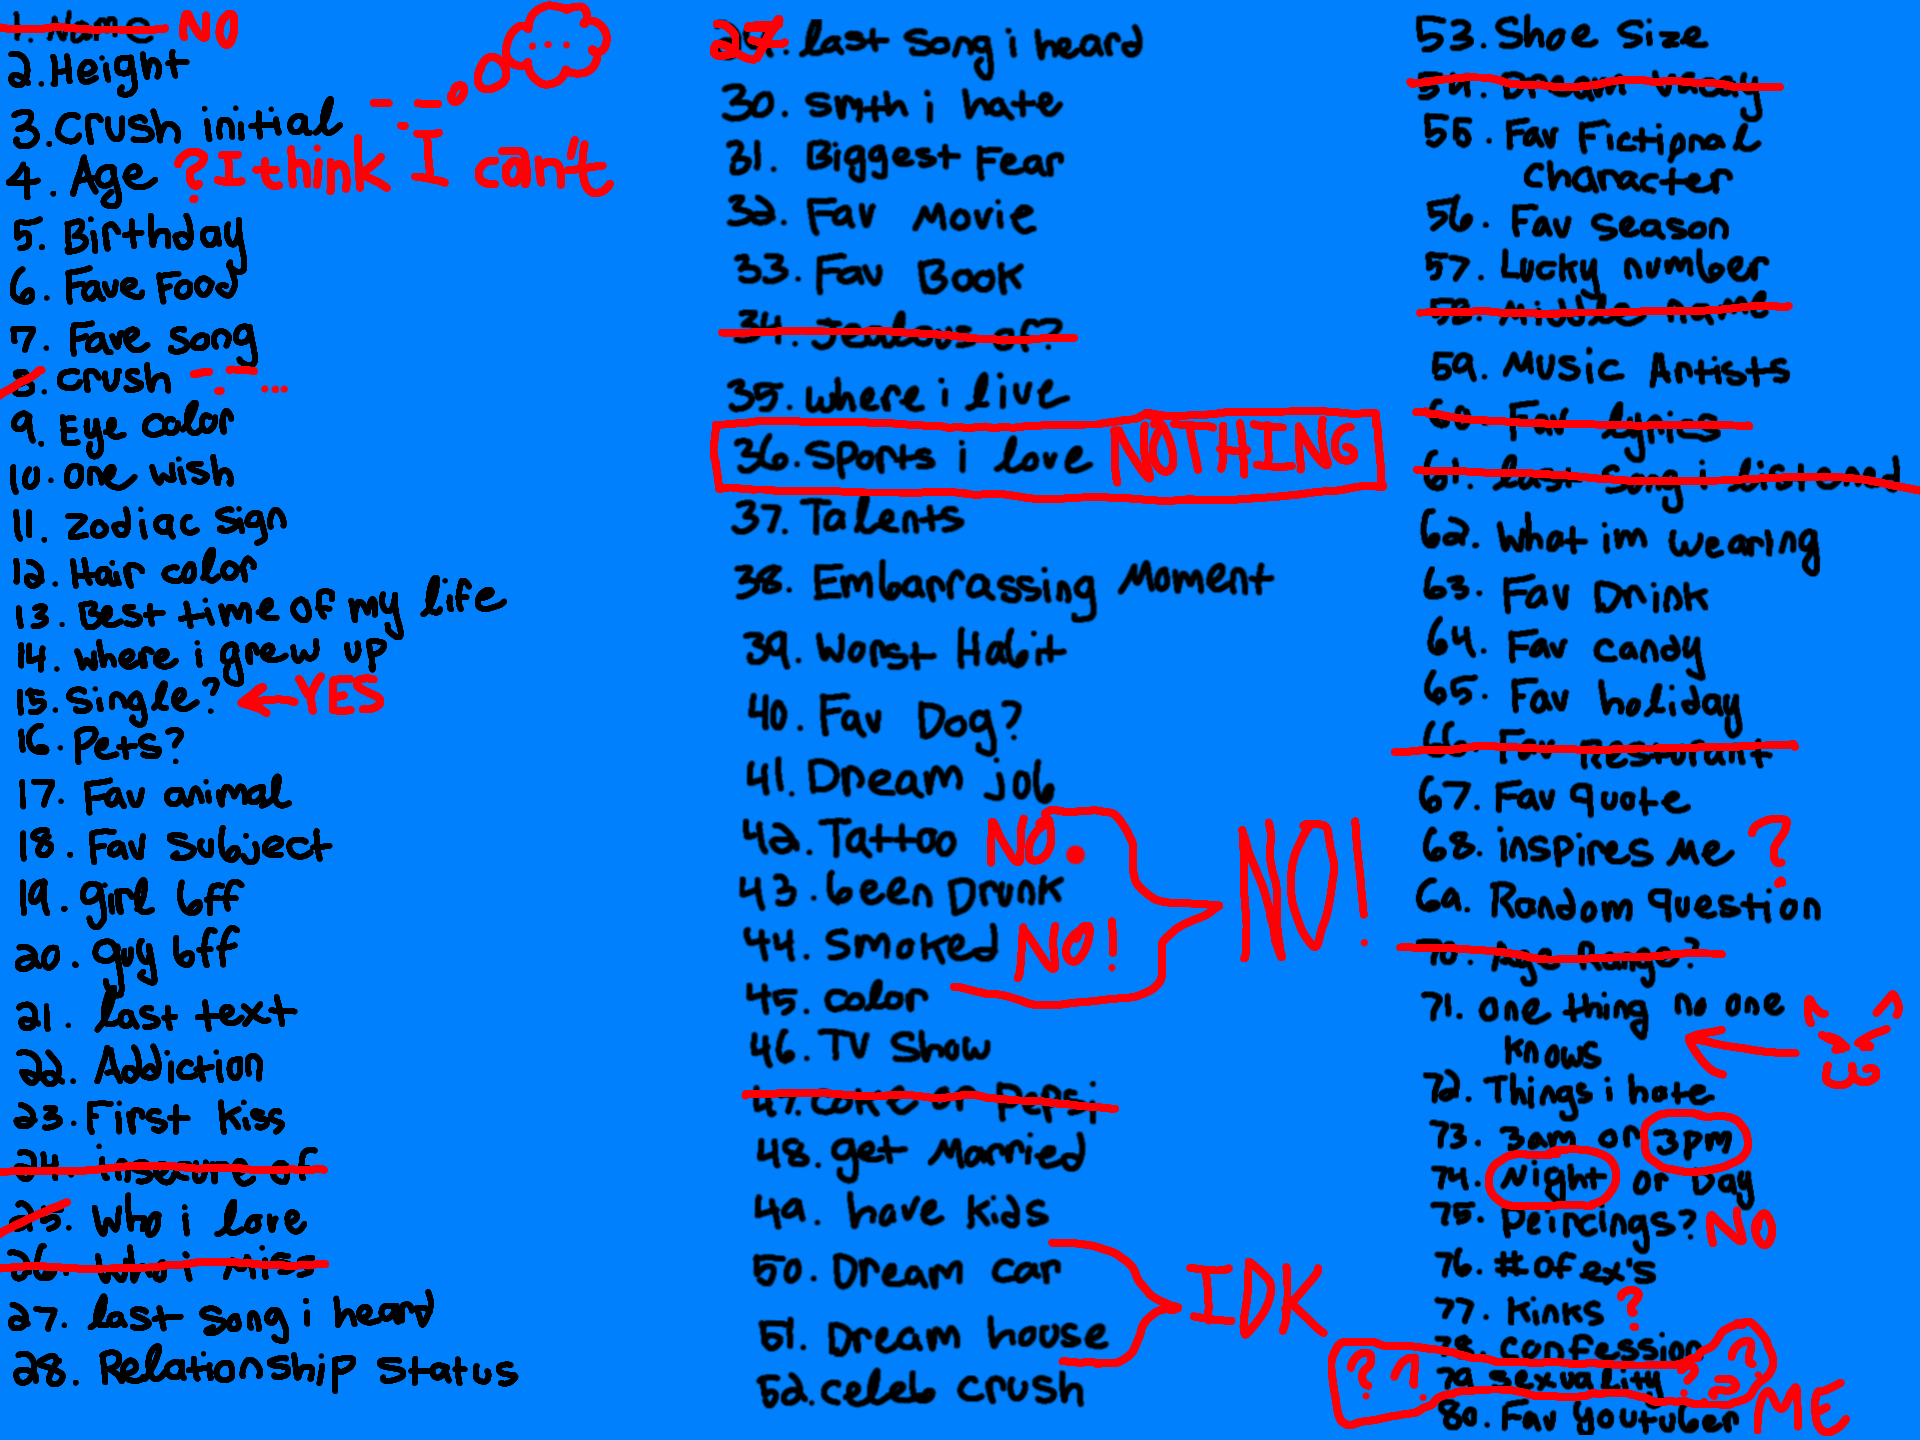 1. Name NO
2. Height
3. Crush initial
...
4. Age ? I think I can't
5. Birthday
6. Fave Food
7. Fave song
8. crush
9. Eye color
10. one wish
11. zodiac sign
12. Hair color
13. Best time of my life
14. where i grew up
15. single? YES
16. Pets?
17. Fav animal
18. Fav subject
19. girl bff
20. guy bff
21. last text
22. Addiction
23. First kiss
24. insecure of
25. Who i love
26. Who i miss
27. last song i heard
28. Relationship status
27. last song i heard
30. smth i hate
31. Biggest Fear
32. Fav Movie
33. Fav Book
34. Jealous of?
35. where i live
36. sports i love NOTHING
37. Talents
38. Embarrassing Moment
39. Worst Habit
40. Fav Dog?
41. Dream job
42. Tattoo NO.
43. been Drunk
NO!
44. smoked NO!
45. color
46. TV Show
47. coke or pepsi
48. get Married
49. have kids
50. Dream car
IDK
51. Dream house
52. celeb crush
53. Shoe Size
54. Dream vacay
55. Fav Fictional
character
56. Fav season
57. Lucky number
58. middle name
59. Music Artists
60. Fav lyrics
61. last song i listened
62. What im wearing
63. Fav Drink
64. Fav candy
65. Fav holiday
66. Fav Resturant
67. Fav quote
68. inspires Me ?
69. Random question
70. Age Range?
71. one thing no one
knows
72. Things i hate
73. 3am or 3pm
74. Night or Day
75. Peircings? NO
76. # of ex's
77. Kinks ?
78. confession ?
?? 79 sexuality ??
80. Fav youtuber ME